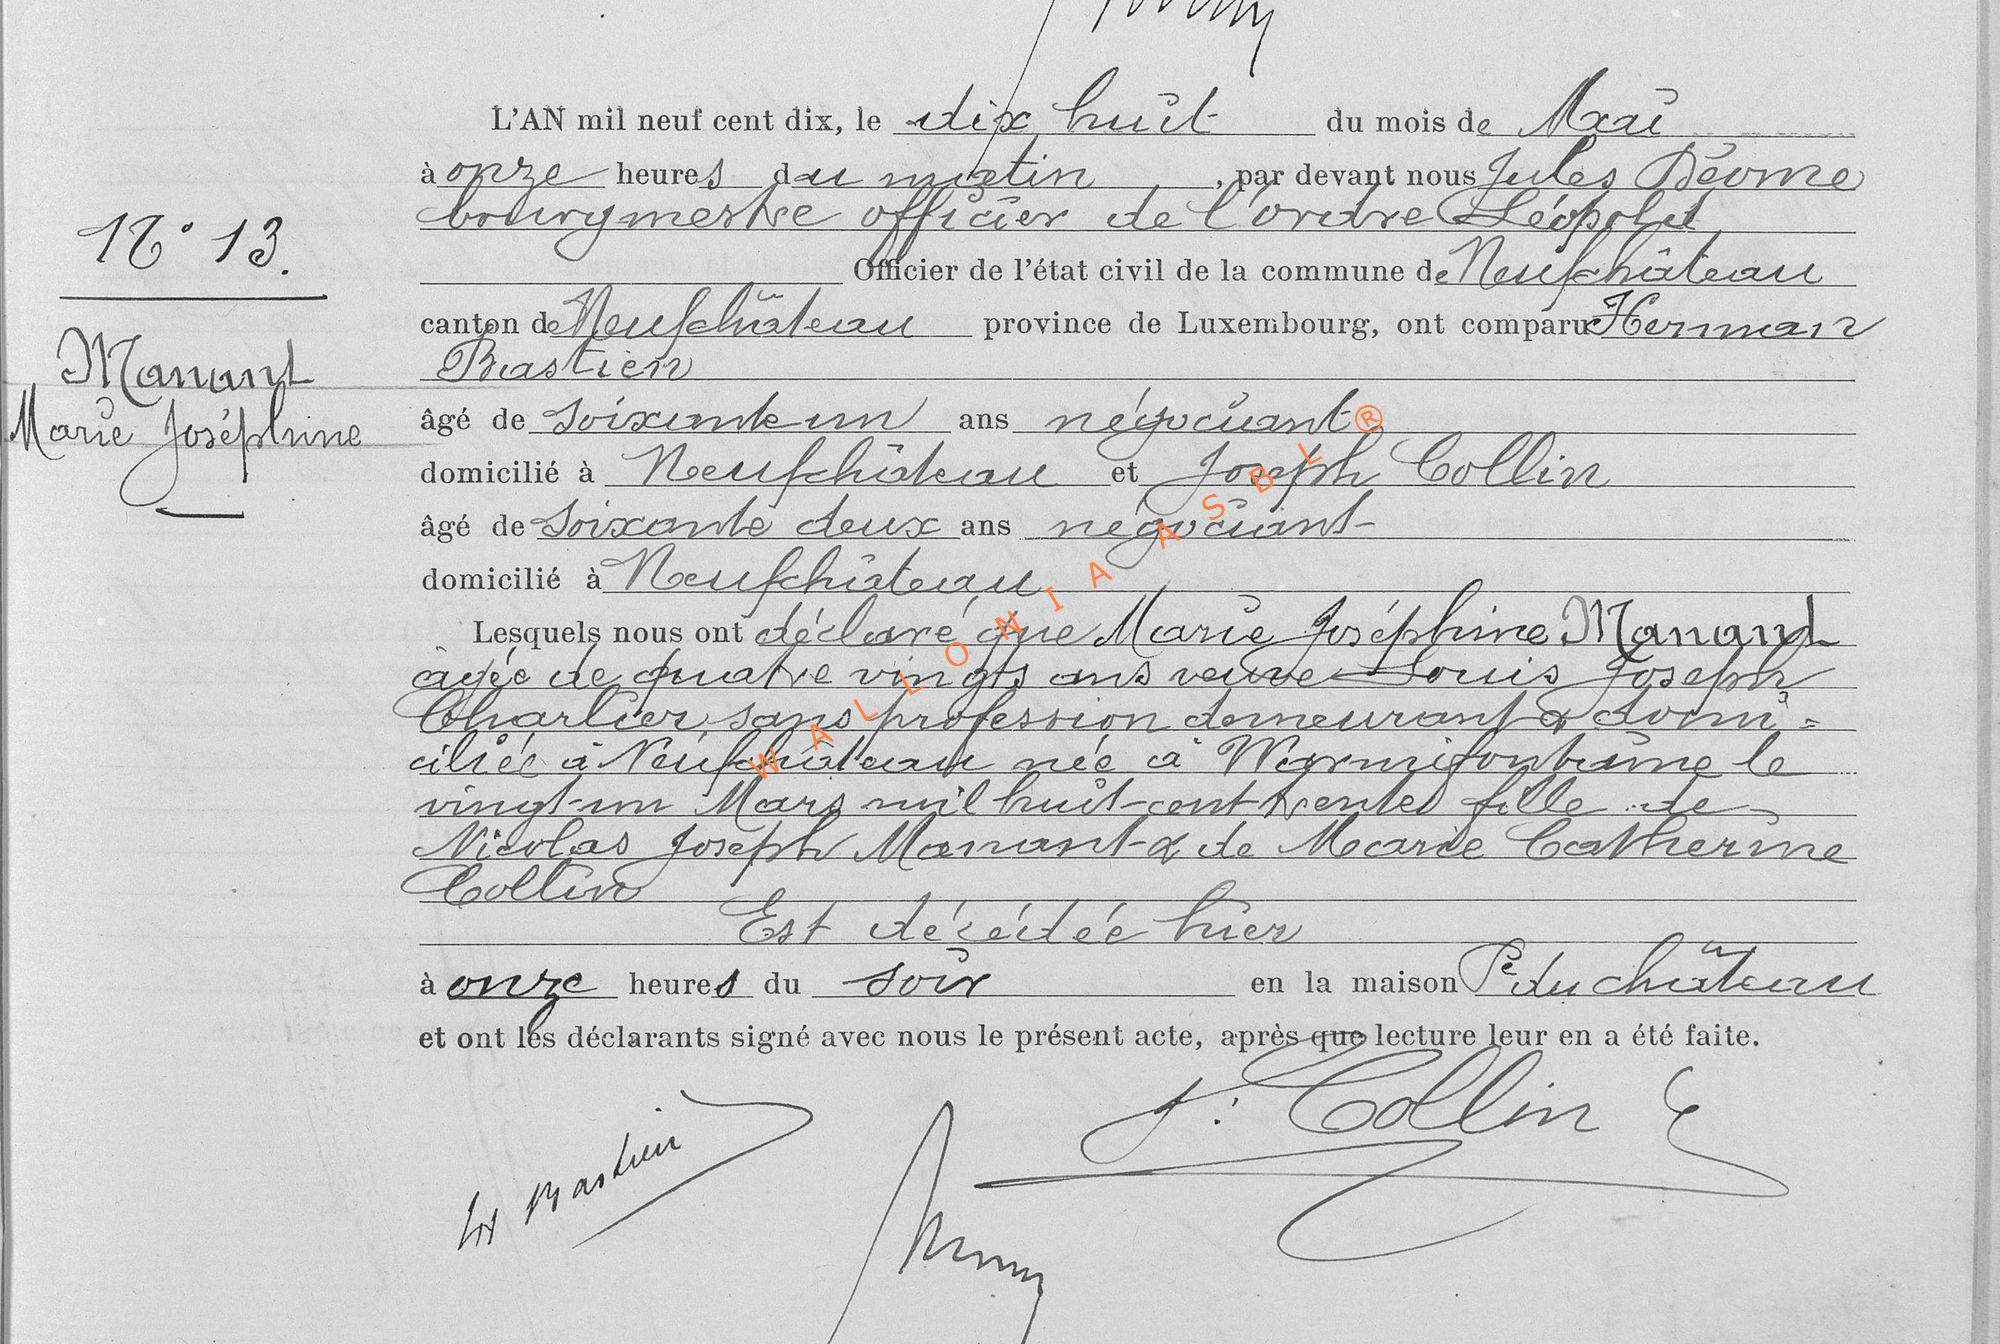 L'AN mil neuf cent dix, le dix huit du mois de Mai
à onze heures du matin, par devant nous Jules Déome
bourgmestre officier de l'ordre Léopold
Officier de l'état civil de la commune de Neufchâteau
N° 13.
canton de Neufchâteau province de Luxembourg, ont comparu Herman
Bastien
Manant
Marie Joséphine
âgé de soixante un ans négociant
domicilié à Neufchâteau et Joseph Collin
âgé de soixante deux ans négociant
domicilié à Neufchâteau
Lesquels nous ont déclaré que Marie Joséphine Manant
âgée de quatre vingts ans veuve Louis Joseph
Charlier sans profession demeurant & domi=
ciliée à Neufchâteau née à Warmifontaine le
vingt-un Mars mil huit-cent-trente fille de
Nicolas Joseph Manant & de Marie Catherine
Collin
Est décédée hier
à onze heures du soir en la maison Pe du château
et ont les déclarants signé avec nous le présent acte, après que lecture leur en a été faite.
J: Collin
H Bastien
WALLONIA ASBL ®